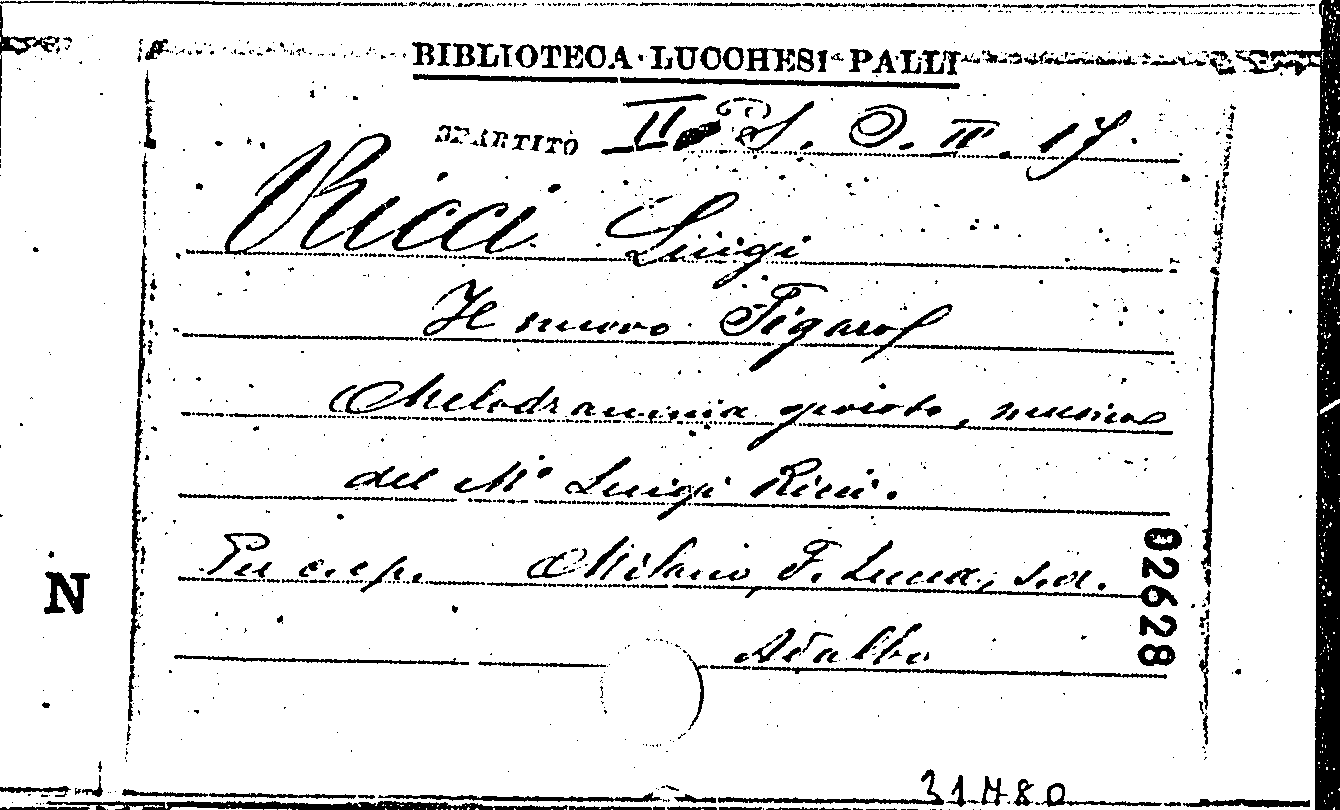 BIBLIOTECA · LUCCHESI - PALLI
SPARTITO II S. O. II. 17.
Ricci Luigi
Il nuovo Figaro
Melodramma giocoso, musica
del M° Luigi Ricci.
Per c. e p. Milano, F. Lucca, s.d.
02628
N
31480